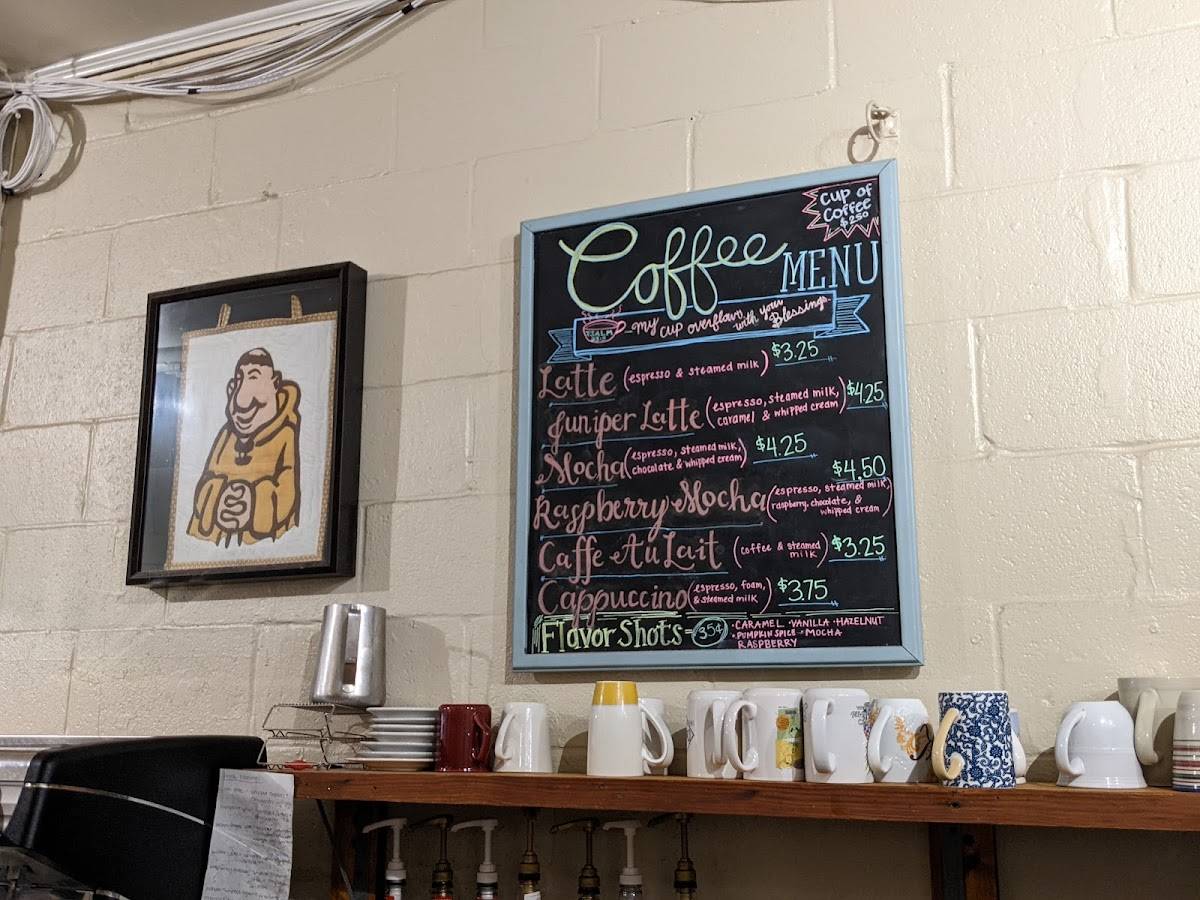 Cup of
Coffee
$2.50
Coffee MENU
PSALM
my cup overflows with your Blessings
Latte (espresso & steamed milk) $3.25
Juniper Latte (espresso, steamed milk, caramel & whipped cream) $4.25
Mocha (espresso, steamed milk, chocolate & whipped cream) $4.25
Raspberry Mocha (espresso, steamed milk, raspberry, chocolate, & whipped cream) $4.50
Caffe Au Lait (coffee & steamed milk) $3.25
Cappuccino (espresso, foam, & steamed milk) $3.75
Flavor Shots - 35¢ • CARAMEL • VANILLA • HAZELNUT
• PUMPKIN SPICE • MOCHA
RASPBERRY